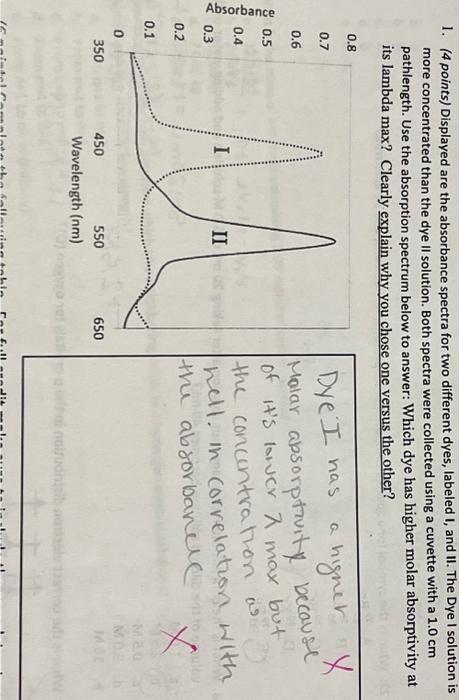 1. (4 points) Displayed are the absorbance spectra for two different dyes, labeled I, and II. The Dye I solution is
more concentrated than the dye II solution. Both spectra were collected using a cuvette with a 1.0 cm
pathlength. Use the absorption spectrum below to answer: Which dye has higher molar absorptivity at
its lambda max? Clearly explain why you chose one versus the other?
0.8
0.7
0.6
0.5
0.4
0.3
0.2
0.1
0
Absorbance
I
II
350
450
550
650
Wavelength (nm)
Dye I has a higher
Molar absorptivity because
of it's lower λ max but
the concentration as
well. in correlation with
the absorbance
X
X